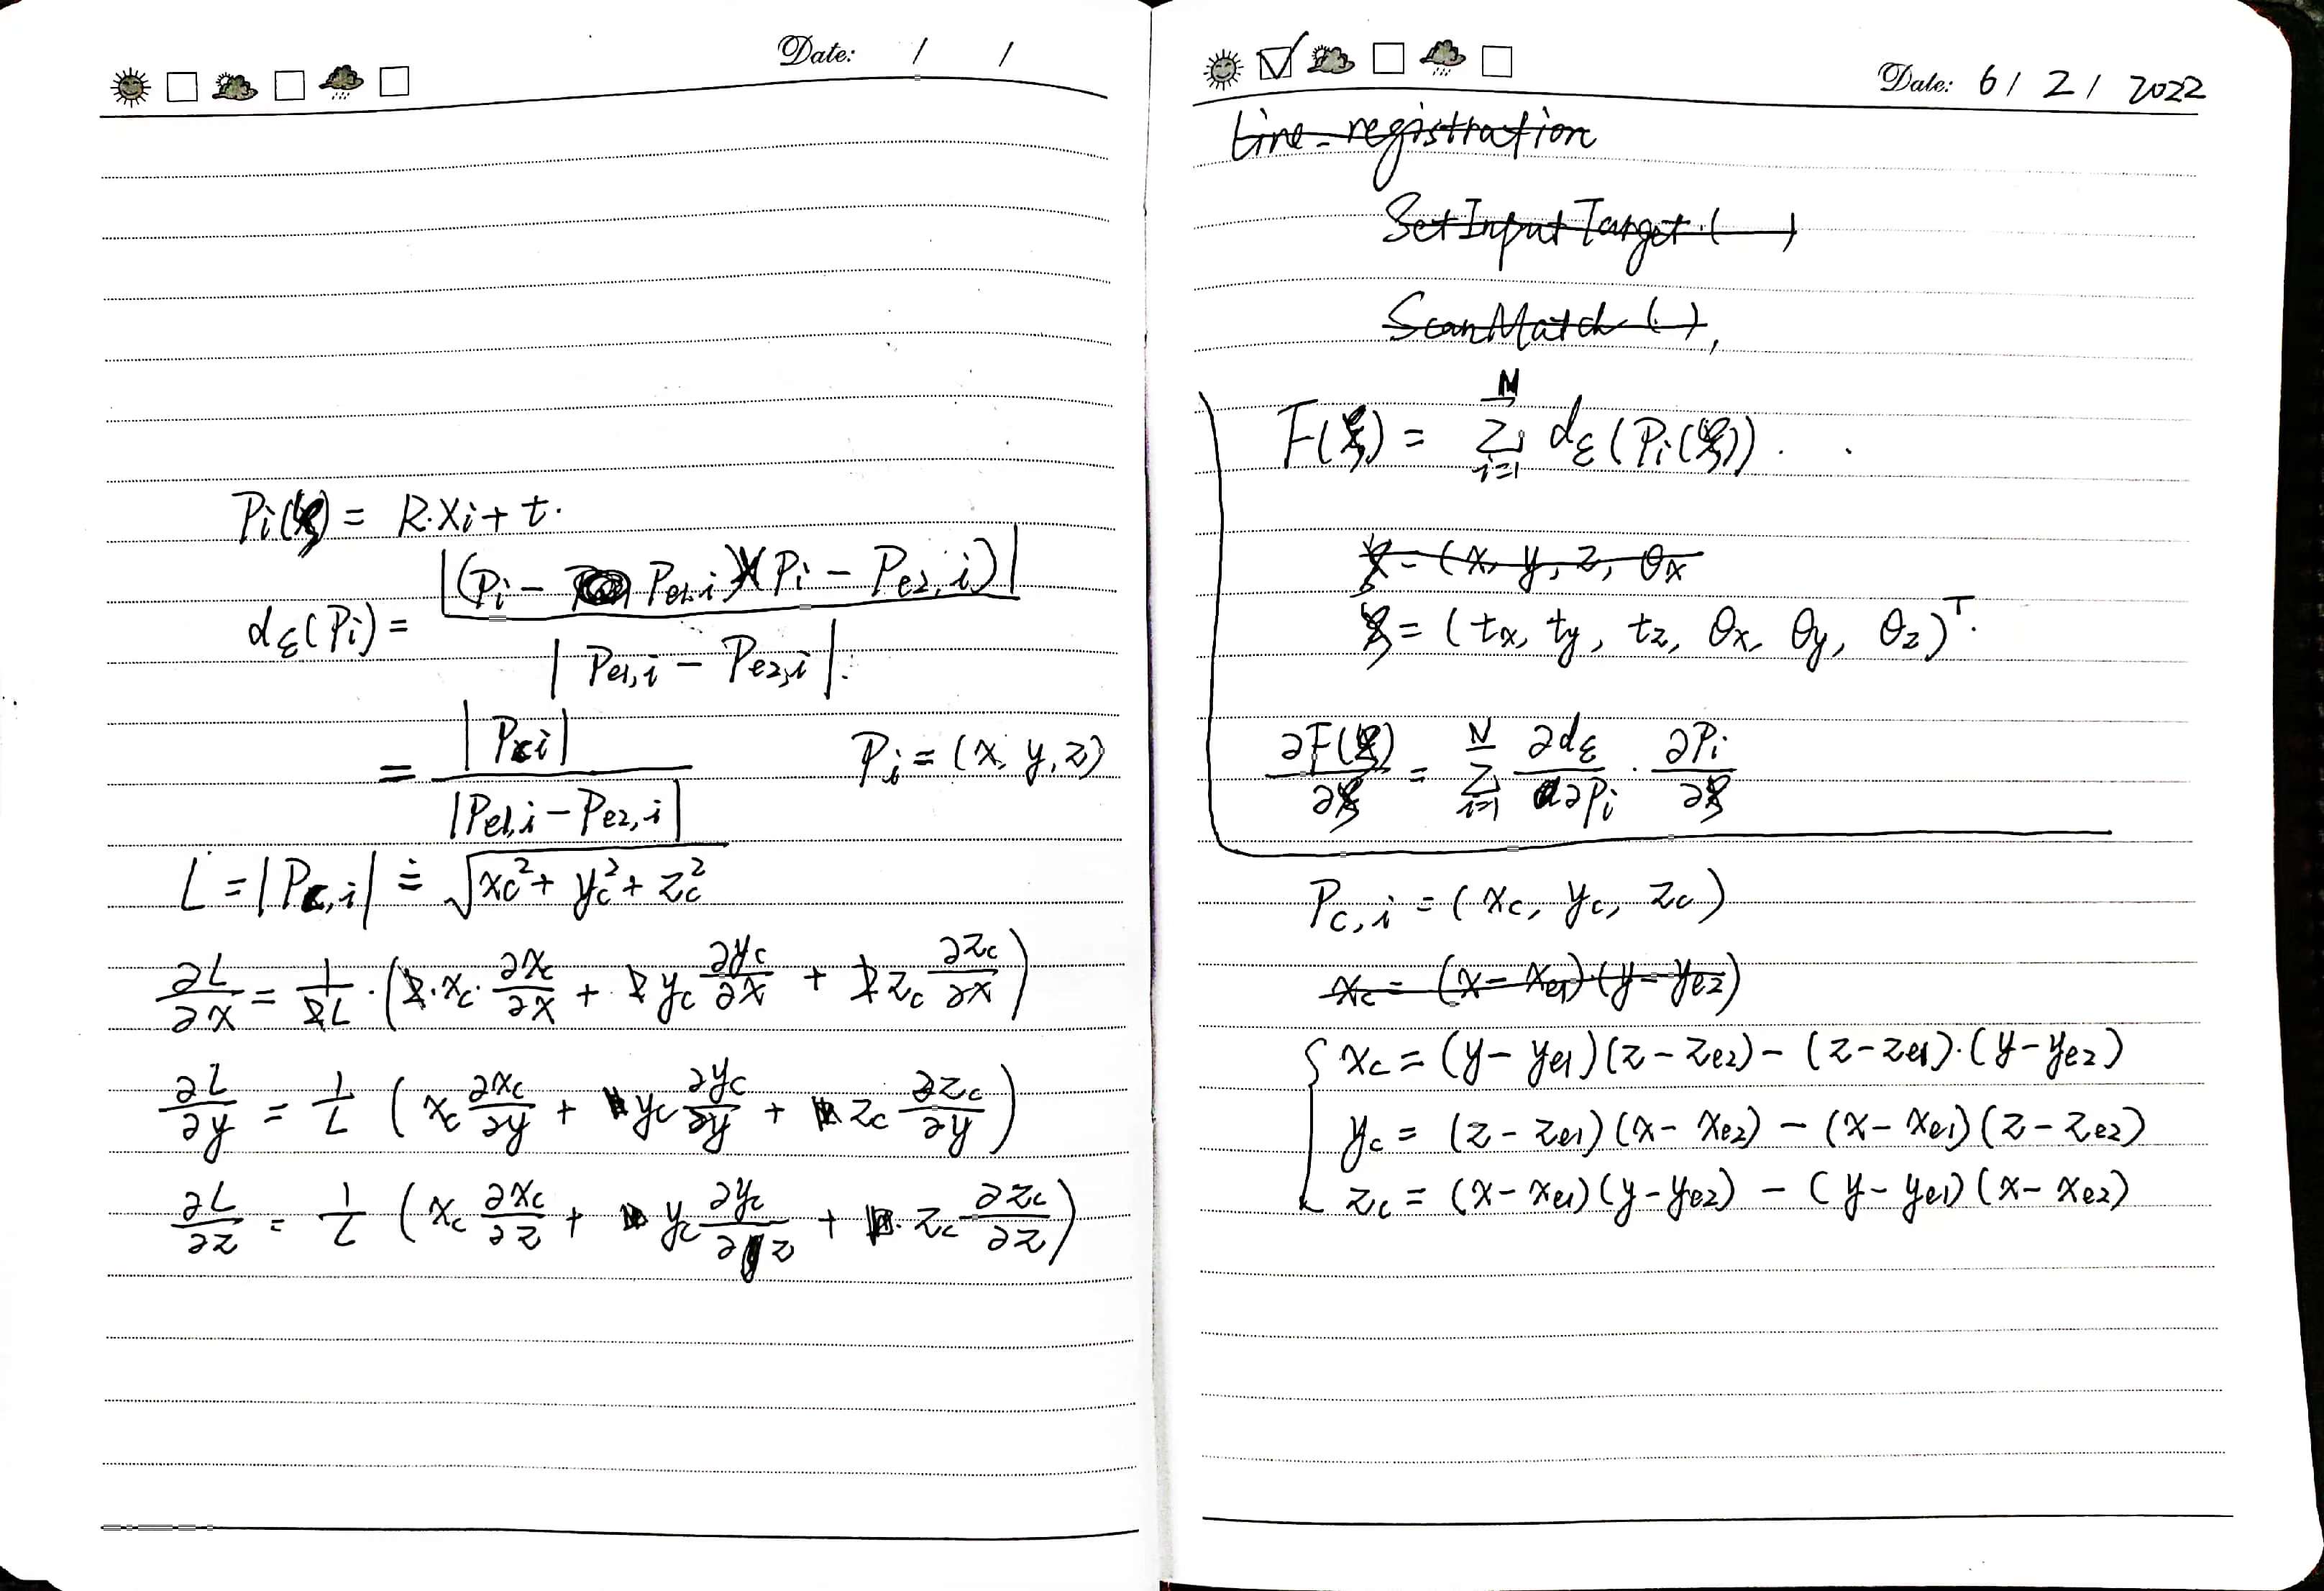 Date: / /
Pi(ξ) = R·Xi + t.
dε(Pi) = |(Pi - Pe1,i)×(Pi - Pe2,i)| / |Pe1,i - Pe2,i|.
= |Pci| / |Pe1,i - Pe2,i|   Pi = (x, y, z)
L = |Pc,i| = √(xc² + yc² + zc²)
∂L/∂x = 1/2L · (2·xc·∂xc/∂x + 2yc ∂yc/∂x + 2zc ∂zc/∂x)
∂L/∂y = 1/L (xc ∂xc/∂y + yc ∂yc/∂y + zc ∂zc/∂y)
∂L/∂z = 1/L (xc ∂xc/∂z + yc ∂yc/∂z + zc ∂zc/∂z)
Date: 6 / 2 / 2022
line_registration
SetInputTarget( )
ScanMatch( ),
F(ξ) = Σ_{i=1}^{N} dε(Pi(ξ)).
ξ = (x, y, z, θx
ξ = (tx, ty, tz, θx, θy, θz)ᵀ.
∂F(ξ)/∂ξ = Σ_{i=1}^{N} ∂dε/∂Pi · ∂Pi/∂ξ
Pc,i = (xc, yc, zc)
xc = (x - xe1)·(y - ye2)
{ xc = (y - ye1)(z - ze2) - (z - ze1)·(y - ye2)
yc = (z - ze1)(x - xe2) - (x - xe1)(z - ze2)
zc = (x - xe1)(y - ye2) - (y - ye1)(x - xe2)